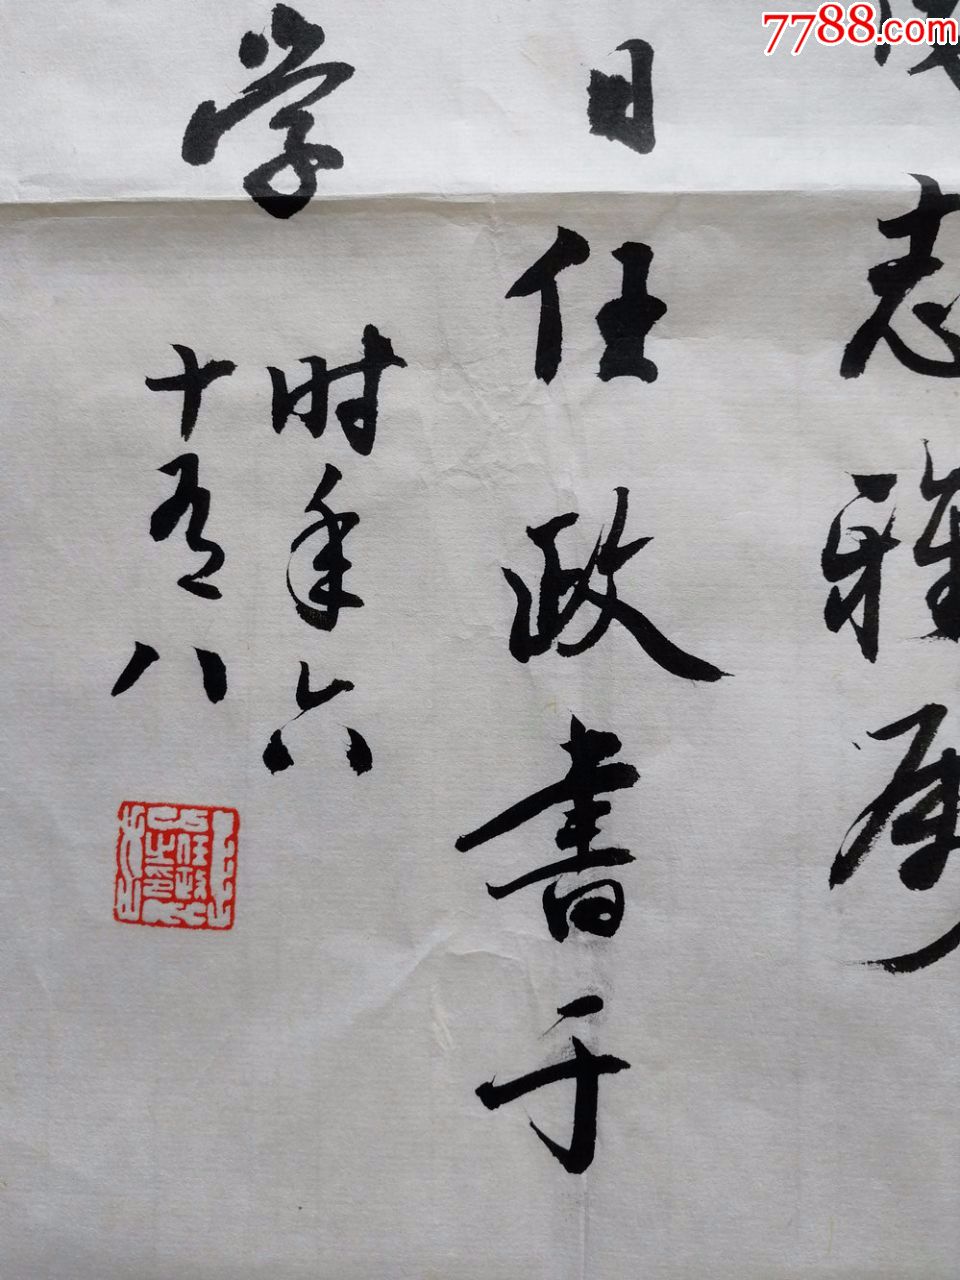 7788.com
志雅属
日任政书于
学
时年六
十有八